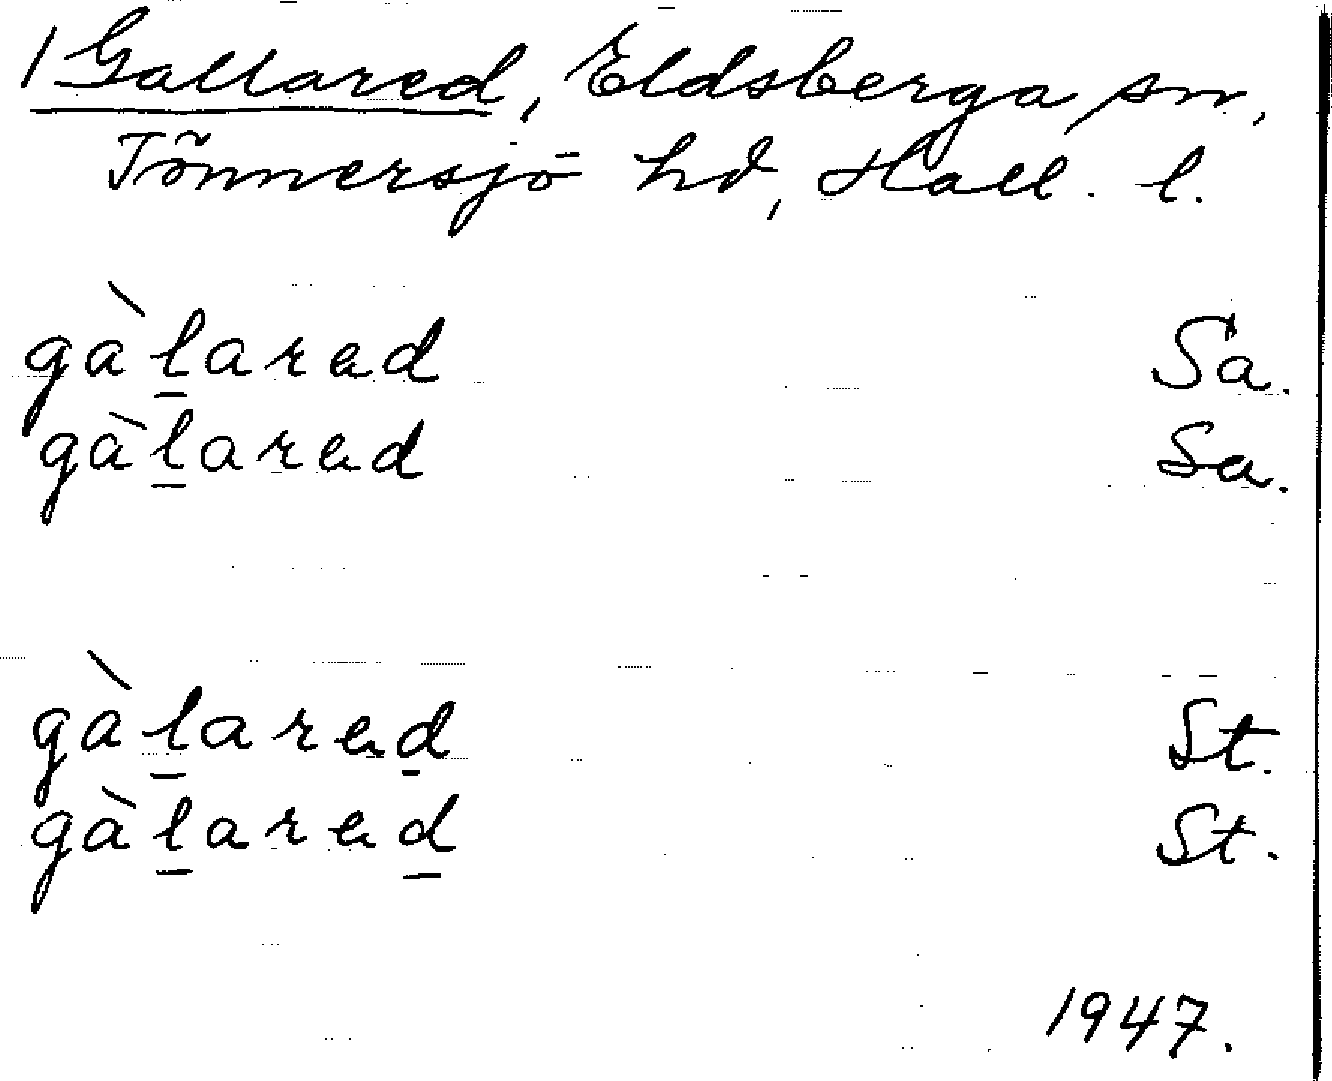 1 Gallared, Eldsberga sn,
Tönnersjö hd, Hall. l.
gàl̲arad Sa.
gàl̲arad Sa.
gàl̲arad̲ St.
gàl̲arad̲ St.
1947.